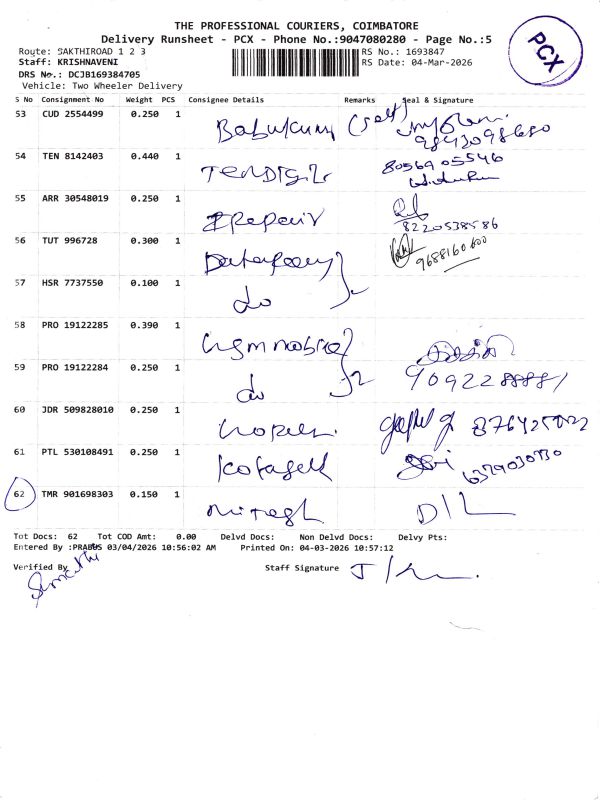 THE PROFESSIONAL COURIERS, COIMBATORE
Delivery Runsheet - PCX - Phone No.:9047080280 - Page No.:5
PCX
Route: SAKTHIROAD 1 2 3
RS No.: 1693847
Staff: KRISHNAVENI
RS Date: 04-Mar-2026
DRS No.: DCJB169384705
Vehicle: Two Wheeler Delivery
S No Consignment No Weight PCS Consignee Details Remarks Seal & Signature
53 CUD 2554499 0.250 1 Babukumr (self)
9843098680
54 TEN 8142403 0.440 1 TenDigit 8056905546
55 ARR 30548019 0.250 1 Irepair
8220538586
56 TUT 996728 0.300 1 9688160600
57 HSR 7737550 0.100 1 do 2
58 PRO 19122285 0.390 1
59 PRO 19122284 0.250 1 do 2 9092288881
60 JDR 509828010 0.250 1
61 PTL 530108491 0.250 1 6379030730
62 TMR 901698303 0.150 1 D/L
Tot Docs: 62 Tot COD Amt: 0.00 Delvd Docs: Non Delvd Docs: Delvy Pts:
Entered By :PRABUS 03/04/2026 10:56:02 AM Printed On: 04-03-2026 10:57:12
Verified By Staff Signature
Sumathi